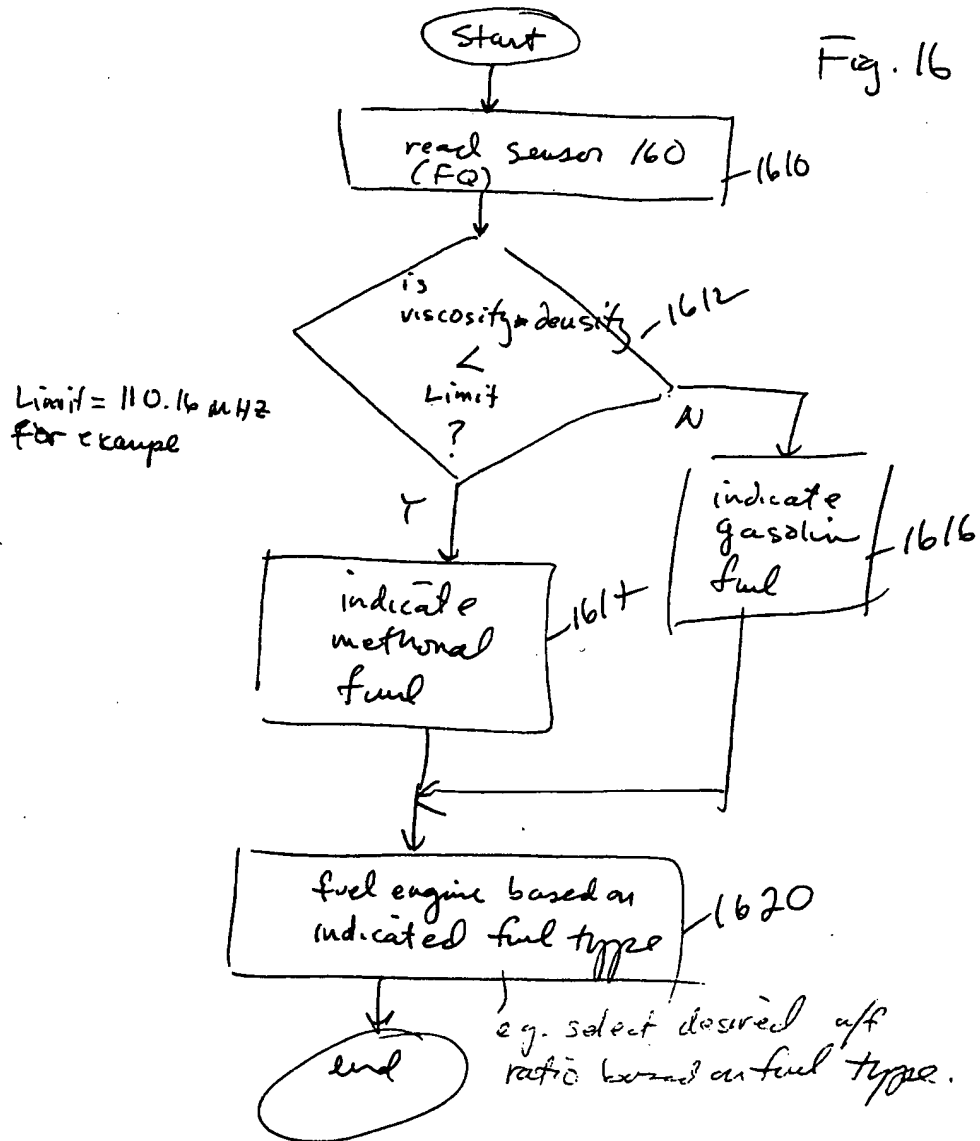 Start
Fig. 16
read sensor 160
(FQ)
1610
is
viscosity * density
<
Limit
?
1612
Limit = 110.16 MHZ
for exampe
N
Y
indicate
gasolin
fuel
1616
indicate
methonal
fuel
161t
fuel engine based on
indicated fuel type
1620
e.g. select desired a/f
ratio based on fuel type.
end